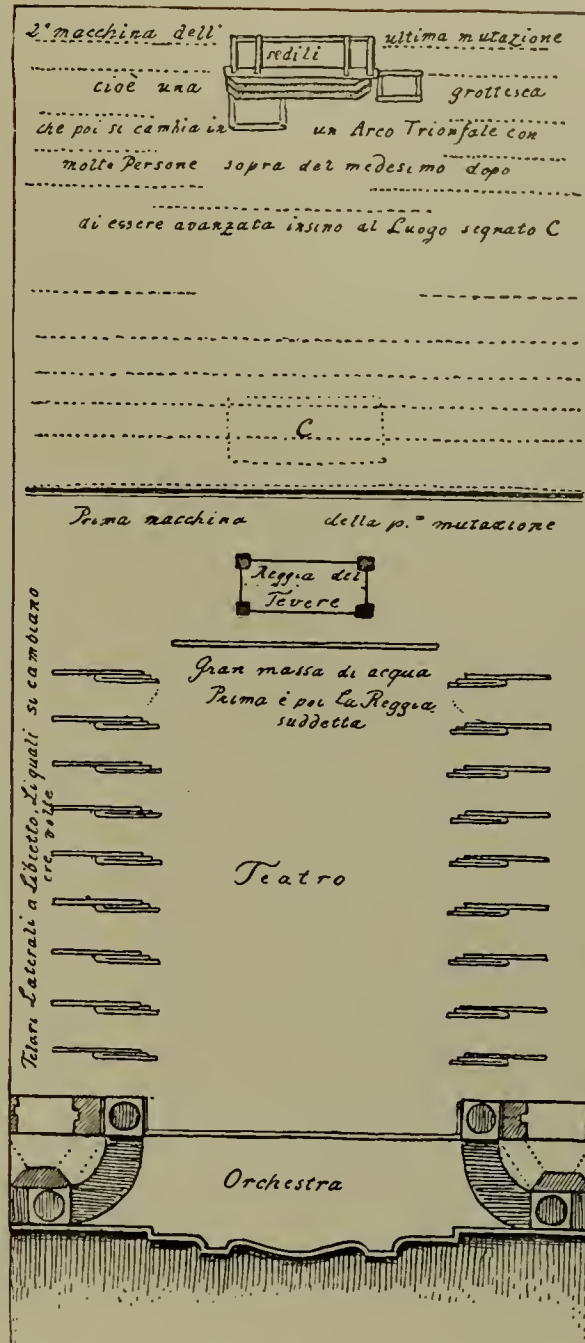 2ª macchina dell' ultima mutazione
sedili
cioè una grottesca
che poi si cambia in un Arco Trionfale con
molte Persone sopra del medesimo dopo
di essere avanzata insino al Luogo segnato C
C
Prima macchina della p.ª mutazione
Reggia del
Tevere
Gran massa di acqua
Prima è poi La Reggia
suddetta
Telari Laterali a Libretto, Li quali si cambiano
tre volte
Teatro
Orchestra